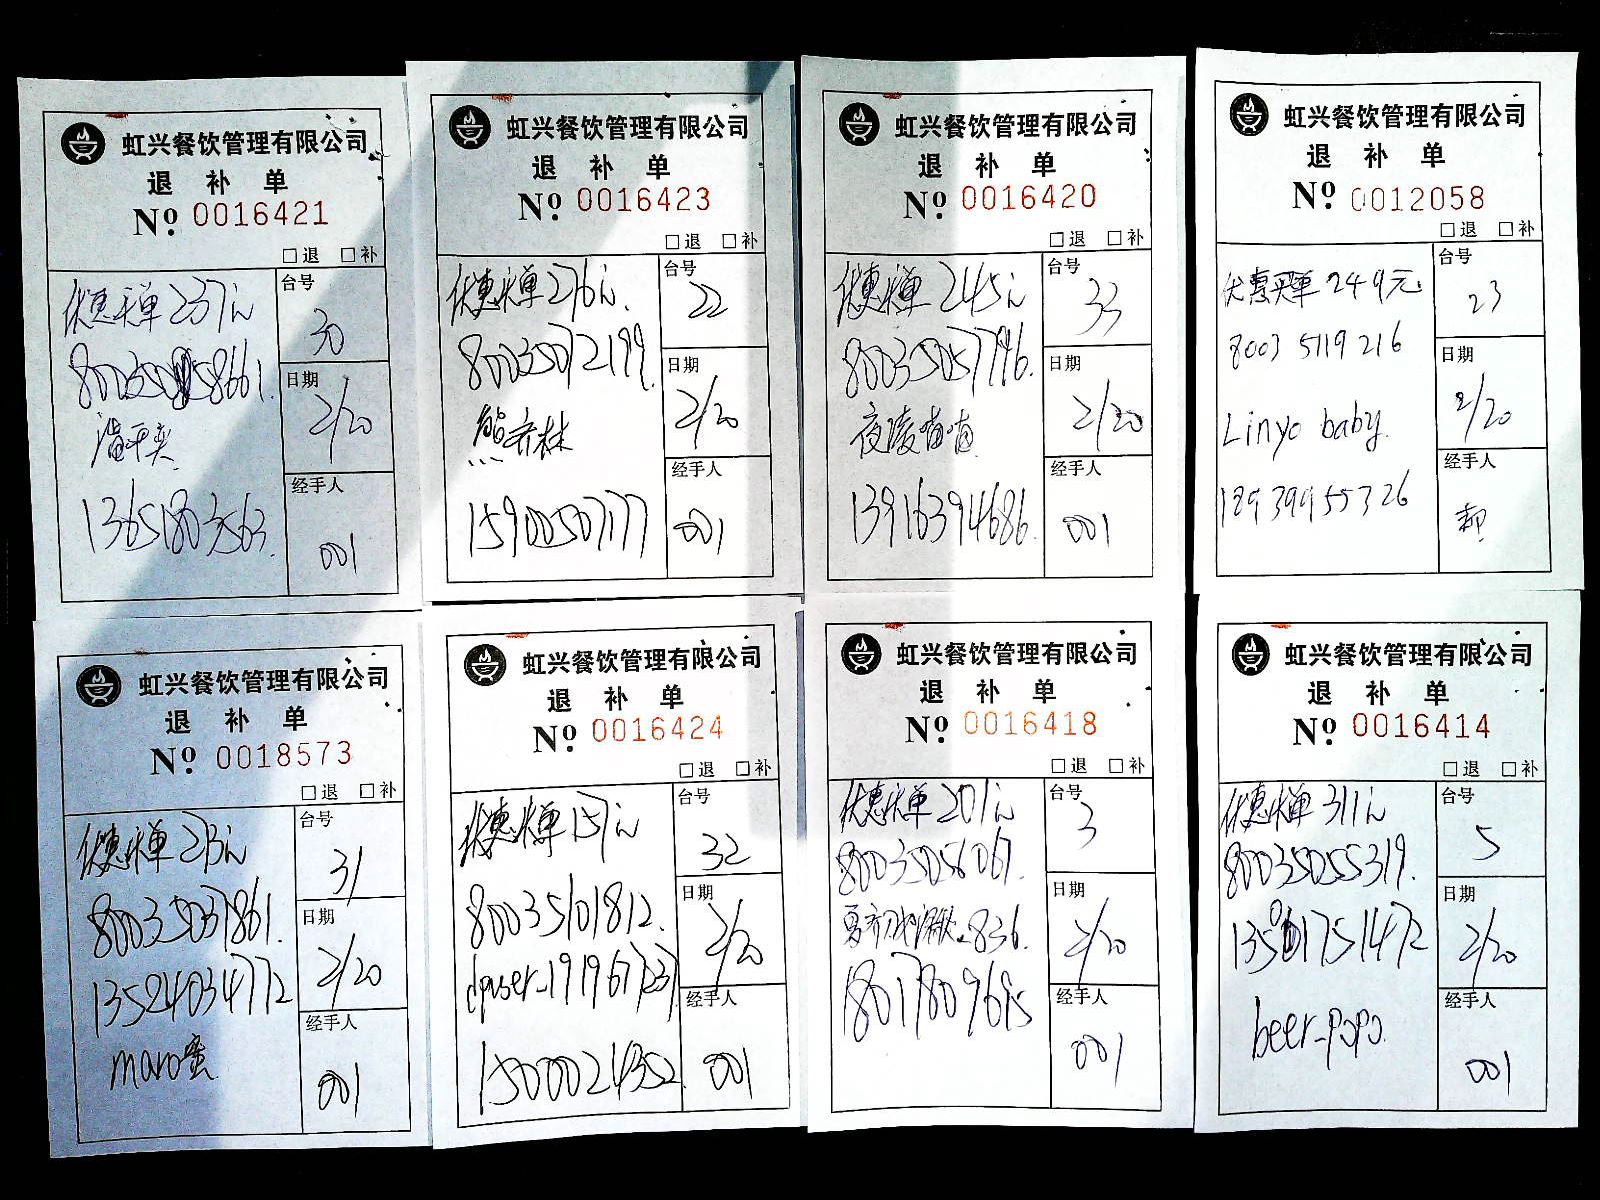 虹兴餐饮管理有限公司
退 补 单
No. 0016421
□退 □补
优惠买单 237元
台号
30
日期
2/20
13651803563
经手人
001
虹兴餐饮管理有限公司
退 补 单
No. 0016423
□退 □补
优惠买单 276元.
台号
22
80035072199.
日期
2/20
熊乔林
15900507177
经手人
001
虹兴餐饮管理有限公司
退 补 单
No. 0016420
□退 □补
优惠买单 245元
台号
33
80035057796.
日期
2/20
夜凌喵喵
13916394686.
经手人
001
虹兴餐饮管理有限公司
退 补 单
No. 0012058
□退 □补
优惠买单 249元.
台号
23
8003 5119 216
日期
2/20
Linyo baby.
189 399 55326
经手人
虹兴餐饮管理有限公司
退 补 单
No. 0018573
□退 □补
优惠买单 213元
台号
31
80035037861.
日期
2/20
13524034772
maro蛮
经手人
001
虹兴餐饮管理有限公司
退 补 单
No. 0016424
□退 □补
优惠买单 157元
台号
32
80035101812.
日期
2/20
15000024352
经手人
001
虹兴餐饮管理有限公司
退 补 单
No. 0016418
□退 □补
优惠买单 201元
台号
3
80035056067.
日期
2/20
18017809695
经手人
001
虹兴餐饮管理有限公司
退 补 单
No. 0016414
□退 □补
优惠买单 311元
台号
5
80035055319.
日期
2/20
beer-popo.
经手人
001